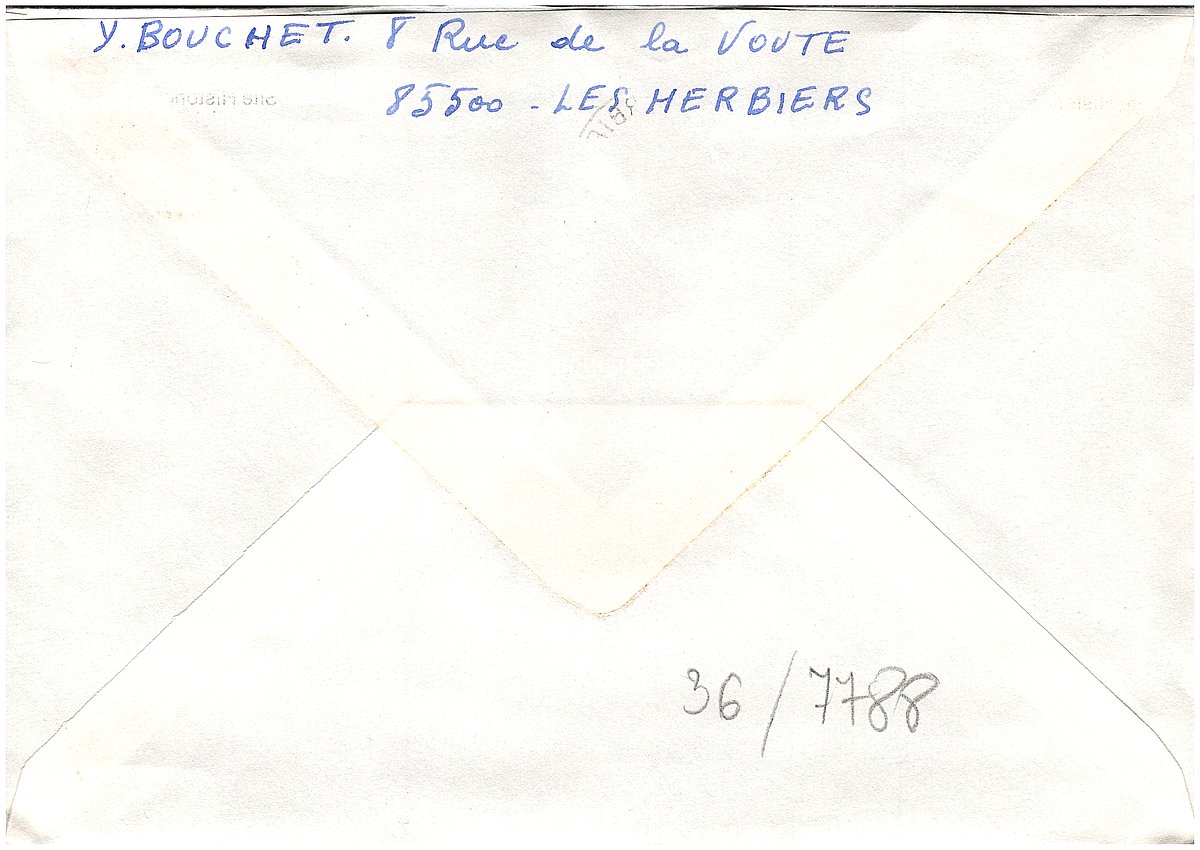 Y. BOUCHET. 8 Rue de la VOUTE
85500 - LES HERBIERS
36/7788